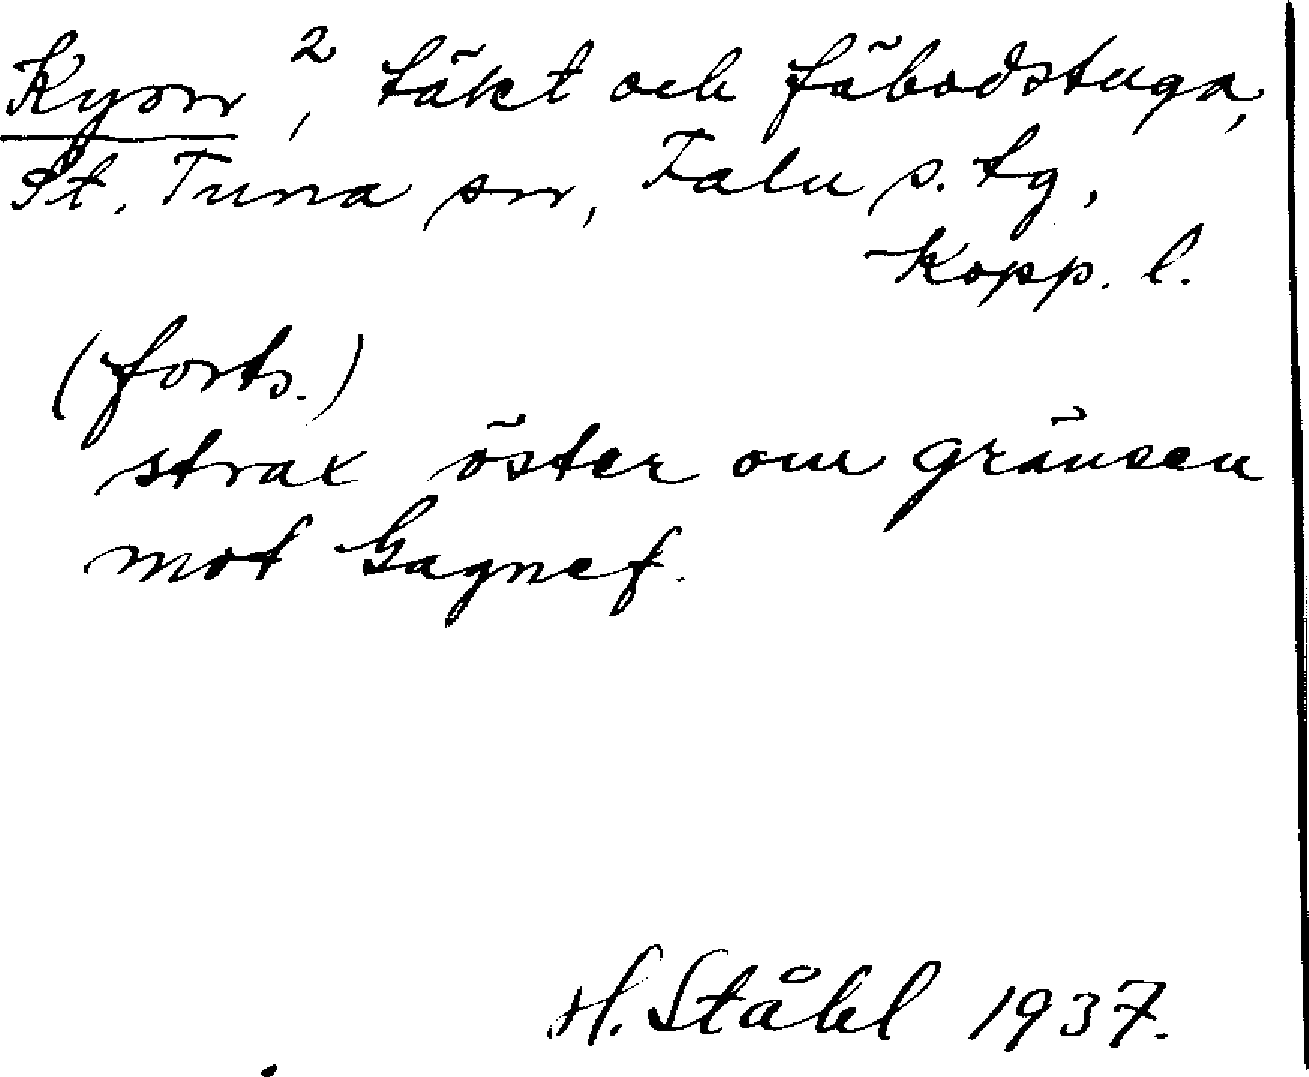 Kysrr 2, täkt och fäbodstuga,
St. Tuna sn, Falu s. tg,
Kopp. l.
(forts.)
strax öster om gränsen
mot Gagnef.
H. Ståhl 1937.